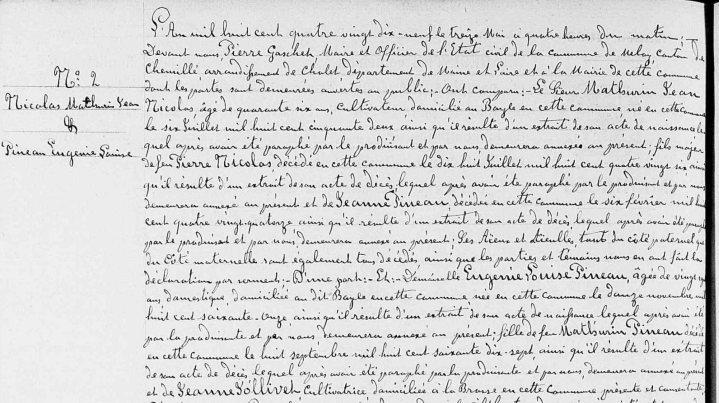 L'An mil huit cent quatre vingt dix-neuf le treize Mai à quatre heures du matin;
Devant nous, Pierre Gaschet, Maire et Officier de l'Etat civil de la commune de Melay canton de
Chemillé arrondissement de Cholet département de Maine et Loire et à la Mairie de cette commune
dont les portes sont demeurées ouvertes au public; - Ont comparu; - Le Sieur Mathurin Jean
Nicolas, âgé de quarante six ans, cultivateur domicilié au Bayle en cette commune né en cette commune
le six Juillet mil huit cent cinquante deux ainsi qu'il résulte d'un extrait de son acte de naissance le
quel après avoir été paraphé par le produisant et par nous, demeurera annexé au présent; fils majeur
de feu Pierre Nicolas, décédé en cette commune le dix huit Juillet mil huit cent quatre vingt six ainsi
qu'il résulte d'un extrait de son acte de décès, lequel après avoir été paraphé par le produisant et par nous
demeurera annexé au présent et de Jeanne Pineau, décédée en cette commune le six février mil huit
cent quatre vingt-quatorze ainsi qu'il résulte d'un extrait de son acte de décès lequel après avoir été paraphé
par le produisant et par nous, demeurera annexé au présent; Ses Aïeux et Aïeulles, tant du côté paternel que
du côté maternelle sont également tous décédés ainsi que les parties et témoins nous en ont fait la
déclaration par serment; - D'une part; - Et; - Demoiselle Eugénie Louise Pineau, âgée de vingt
ans, domestique, domiciliée au dit Bayle en cette commune née en cette commune le douze novembre mil
huit cent soixante-onze, ainsi qu'il résulte d'un extrait de son acte de naissance lequel après avoir été
par la produisante et par nous, demeurera annexé au présent; fille de feu Mathurin Pineau, décédé
en cette commune le huit septembre mil huit cent soixante dix-sept, ainsi qu'il résulte d'un extrait
de son acte de décès lequel après avoir été paraphé par la produisante et par nous, demeurera annexé au présent
et de Jeanne Jollivet cultivatrice domiciliée à la Brosse en cette commune présente et consentante;
N° 2
Nicolas Mathurin Jean
&
Pineau Eugenie Louise